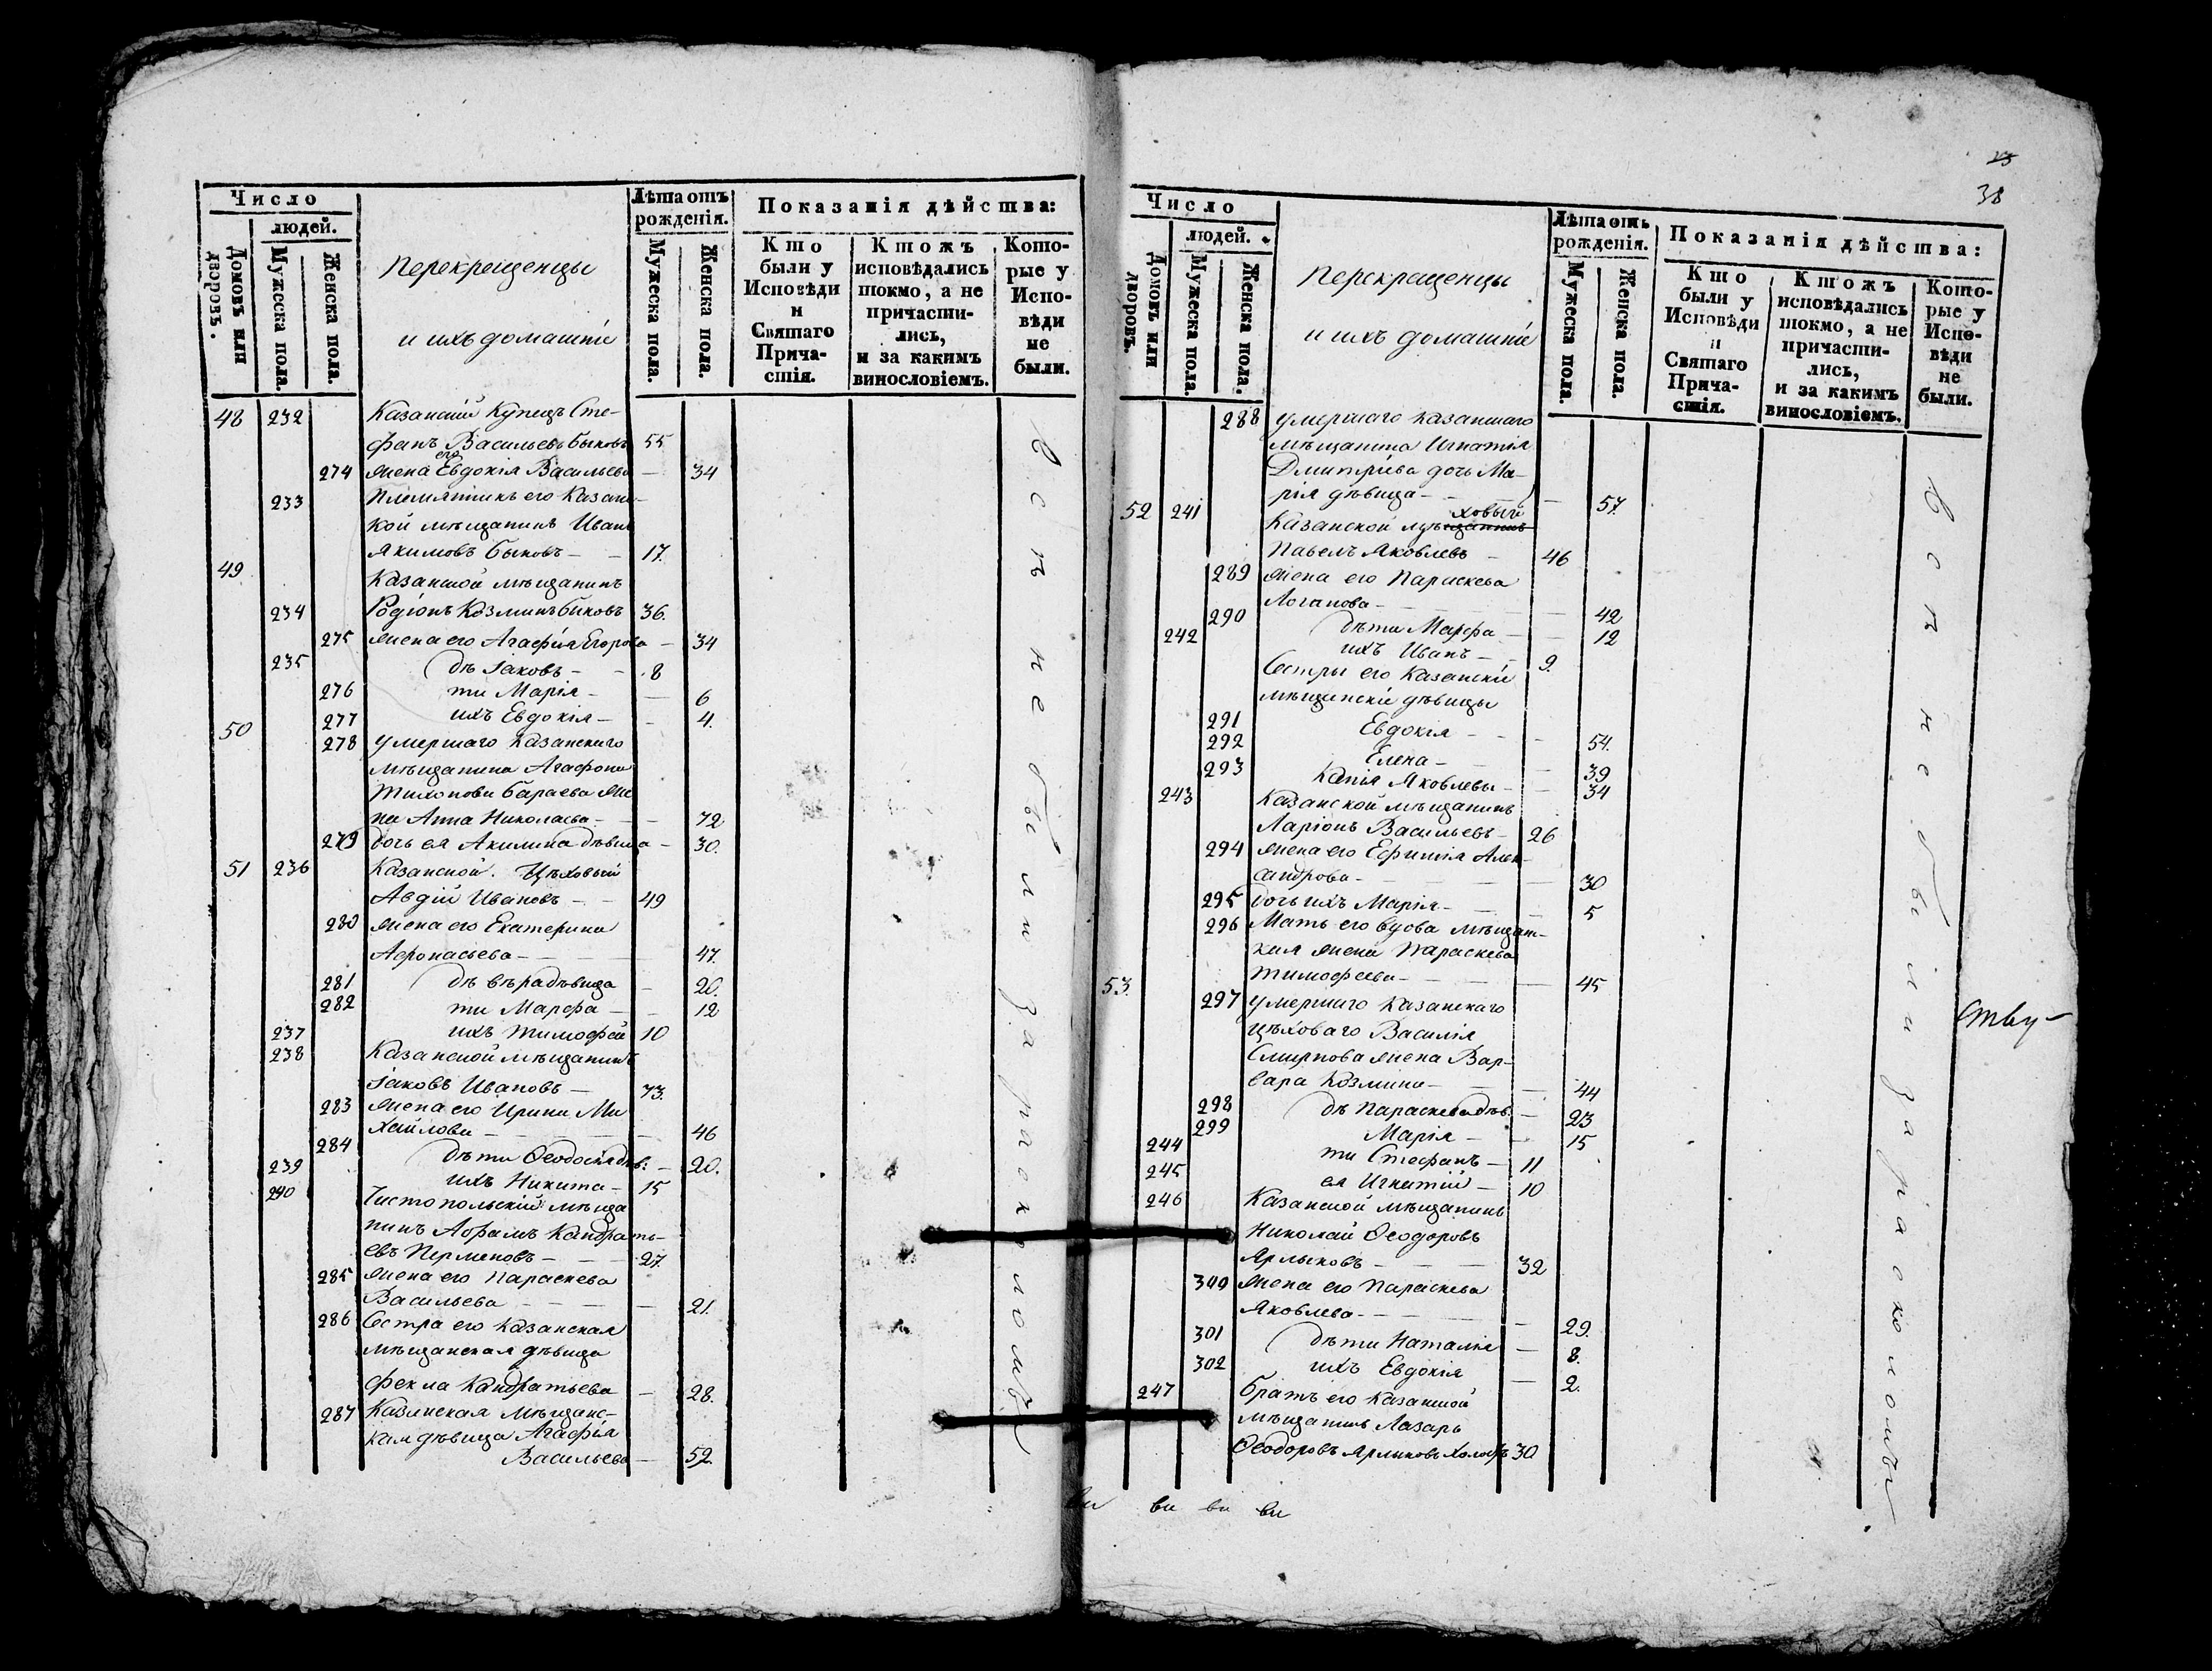 Число
людей.
Домовъ или дворовъ.
Мужеска пола.
Женска пола.
Перекрещенцы
и ихъ домашніе
Лѣта отъ рожденія.
Мужеска пола.
Женска пола.
Показанія дѣйства:
Кто были у Исповѣди и Святаго Причастія.
Ктожъ исповѣдались токмо, а не причастились, и за какимъ винословіемъ.
Которые у Исповѣди не были.
48 232 Казанскій купецъ Сте-
фанъ Васильевъ Быковъ 55
274 жена его Евдокія Васильева — 34
233 Племянникъ его Казанс-
кой мѣщанинъ Иванъ
Якимовъ Быковъ — — 17.
49 Казанской мѣщанинъ
234 Родіонъ Козминъ Быковъ 36.
275 жена его Агафія Егорова — 34
235 дѣ Іаковъ — — 8
276 ти Марія — — 6
277 ихъ Евдокія — — 4.
50 278 умершаго Казанскаго
мѣщанина Агафона
Тихонова Бараева же
на Анна Николаева — — 72
279 дочь ея Акилина дѣвица — 30.
51 236 Казанской Цѣховый
Авдій Ивановъ — — 49
280 жена его Екатерина
Афонасьева — — 47.
281 дѣ Вѣра дѣвица — 20.
282 ти Марфа — — 12
237 ихъ Тимофей 10
238 Казанской мѣщанинъ
Іаковъ Ивановъ — 73.
283 жена его Ирина Ми
хайлова — — 46
284 дѣти Ѳеодосія дѣв: — 20.
239 ихъ Никита — 15
240 Чистопольскій мѣща
нинъ Абрамъ Кандрать-
евъ Перменовъ — — 27.
285 жена его Параскева
Васильева — — — 21.
286 Сестра его Казанская
мѣщанская дѣвица
Фекла Кандратьева — 28.
287 Казанская мѣщанс-
кая дѣвица Агафія
Васильева — 52.
Всѣ не были за расколомъ
23
38
Число
людей.
Домовъ или дворовъ.
Мужеска пола.
Женска пола.
Перекрещенцы
и ихъ домашніе
Лѣта отъ рожденія.
Мужеска пола.
Женска пола.
Показанія дѣйства:
Кто были у Исповѣди и Святаго Причастія.
Ктожъ исповѣдались токмо, а не причастились, и за какимъ винословіемъ.
Которые у Исповѣди не были.
288 умершаго Казанскаго
мѣщанина Игнатія
Дмитріева дочь Ма-
рія дѣвица — — 57.
ховый
52 241 Казанской мѣщанинъ
Павелъ Яковлевъ — 46
289 жена его Параскева
Логанова — — 42
290 дѣти Марфа — — 12
242 ихъ Иванъ — — 9.
Сестры его Казанскіе
мѣщанскіе дѣвицы
291 Евдокія — — 54.
292 Елена — — 39
293 Капія Яковлевы — — 34
243 Казанской мѣщанинъ
Ларіонъ Васильевъ — 26
294 жена его Ефимія Алек-
сандрова — — 30
295 дочь ихъ Марія — — 5
296 Мать его вдова мѣщан-
кая жена Параскева
Тимофеева — — 45
53. 297 умершаго Казанскаго
цѣховаго Василія
Смирнова жена Вар-
вара Козмина — — 44
298 дѣ Параскева дѣв: — 23
299 Марія — — 15
244 ти Стефанъ — 11
245 ея Игнатій — 10
246 Казанской мѣщанинъ
Николай Ѳеодоровъ
Ярлыковъ — — 32
300 жена его Параскева
Яковлева — — 29.
301 дѣти Наталія — 8.
302 ихъ Евдокія — 2.
247 Братъ его Казанской
мѣщанинъ Лазарь
Ѳеодоровъ Ярлыковъ холостъ 30
Всѣ не были за расколомъ
ству —
ви ви ви ви